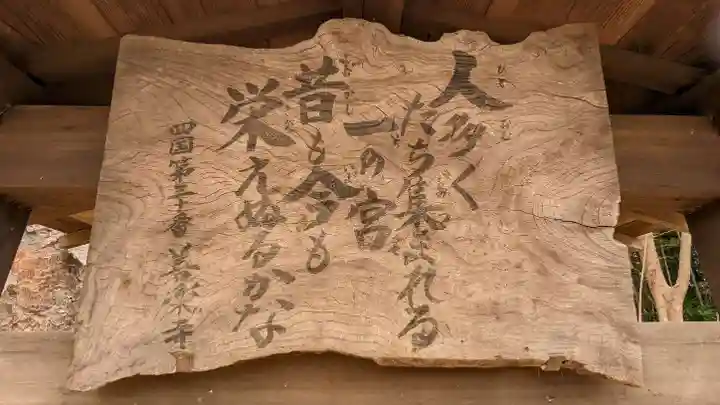 人多く
たち集まれる
一の宮
昔も今も
栄えぬるかな
四国第三十番 善楽寺